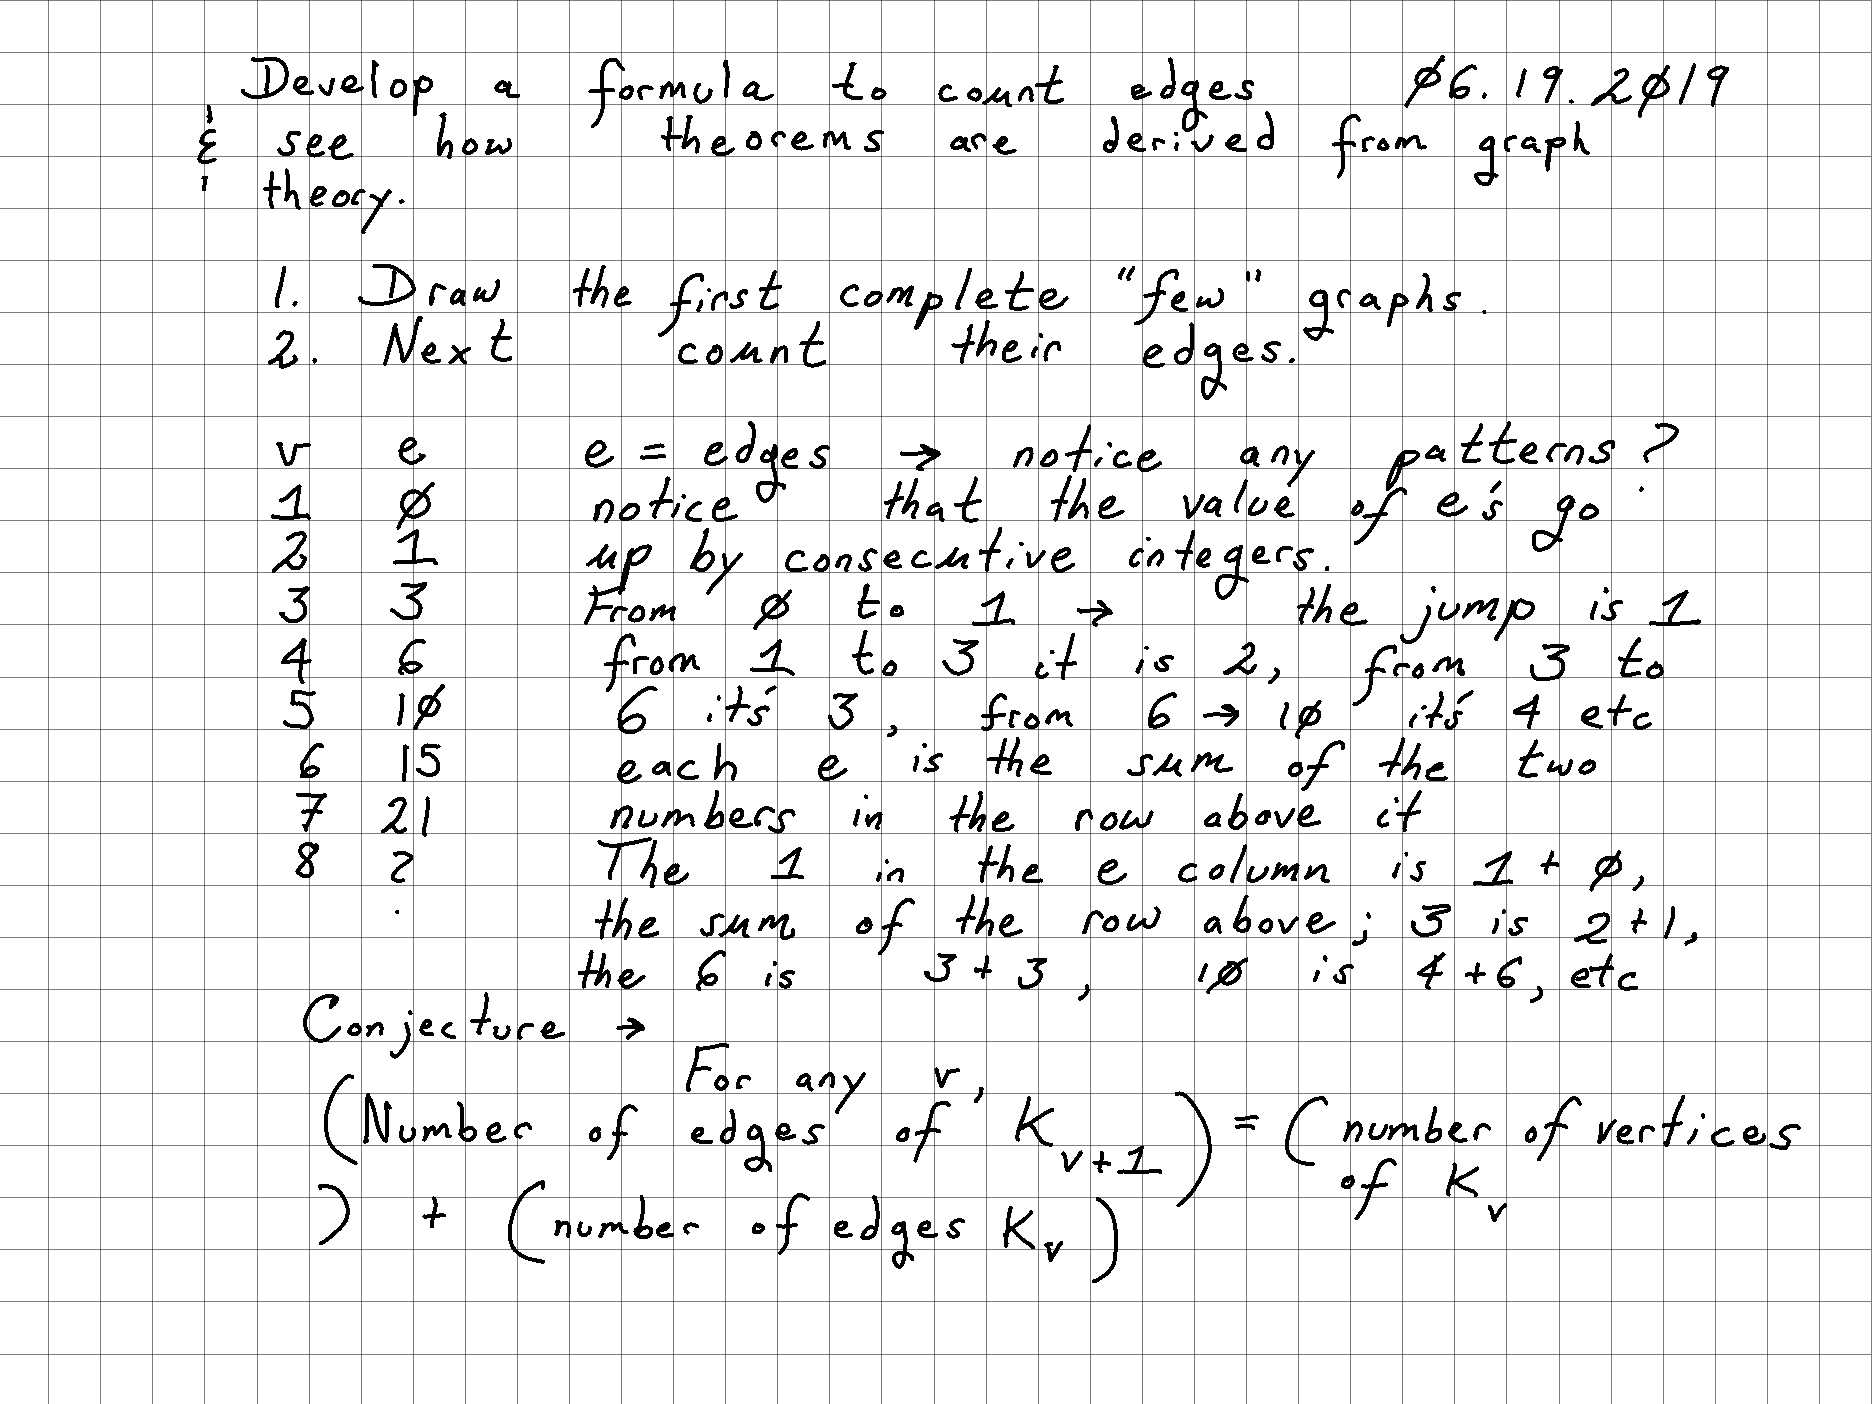 Develop a formula to count edges Ø6.19.2Ø19
& see how theorems are derived from graph
theory.
1. Draw the first complete "few" graphs.
2. Next count their edges.
v e e = edges → notice any patterns?
1 Ø notice that the value of e's go
2 1 up by consecutive integers.
3 3 From Ø to 1 → the jump is 1
4 6 from 1 to 3 it is 2, from 3 to
5 1Ø 6 it's 3, from 6 → 1Ø it's 4 etc
6 15 each e is the sum of the two
7 21 numbers in the row above it
8 ? The 1 in the e column is 1 + Ø,
the sum of the row above; 3 is 2+1,
the 6 is 3+3, 1Ø is 4+6, etc
Conjecture →
For any v,
(Number of edges of K_{v+1}) = (number of vertices
of K_v
) + (number of edges K_v)